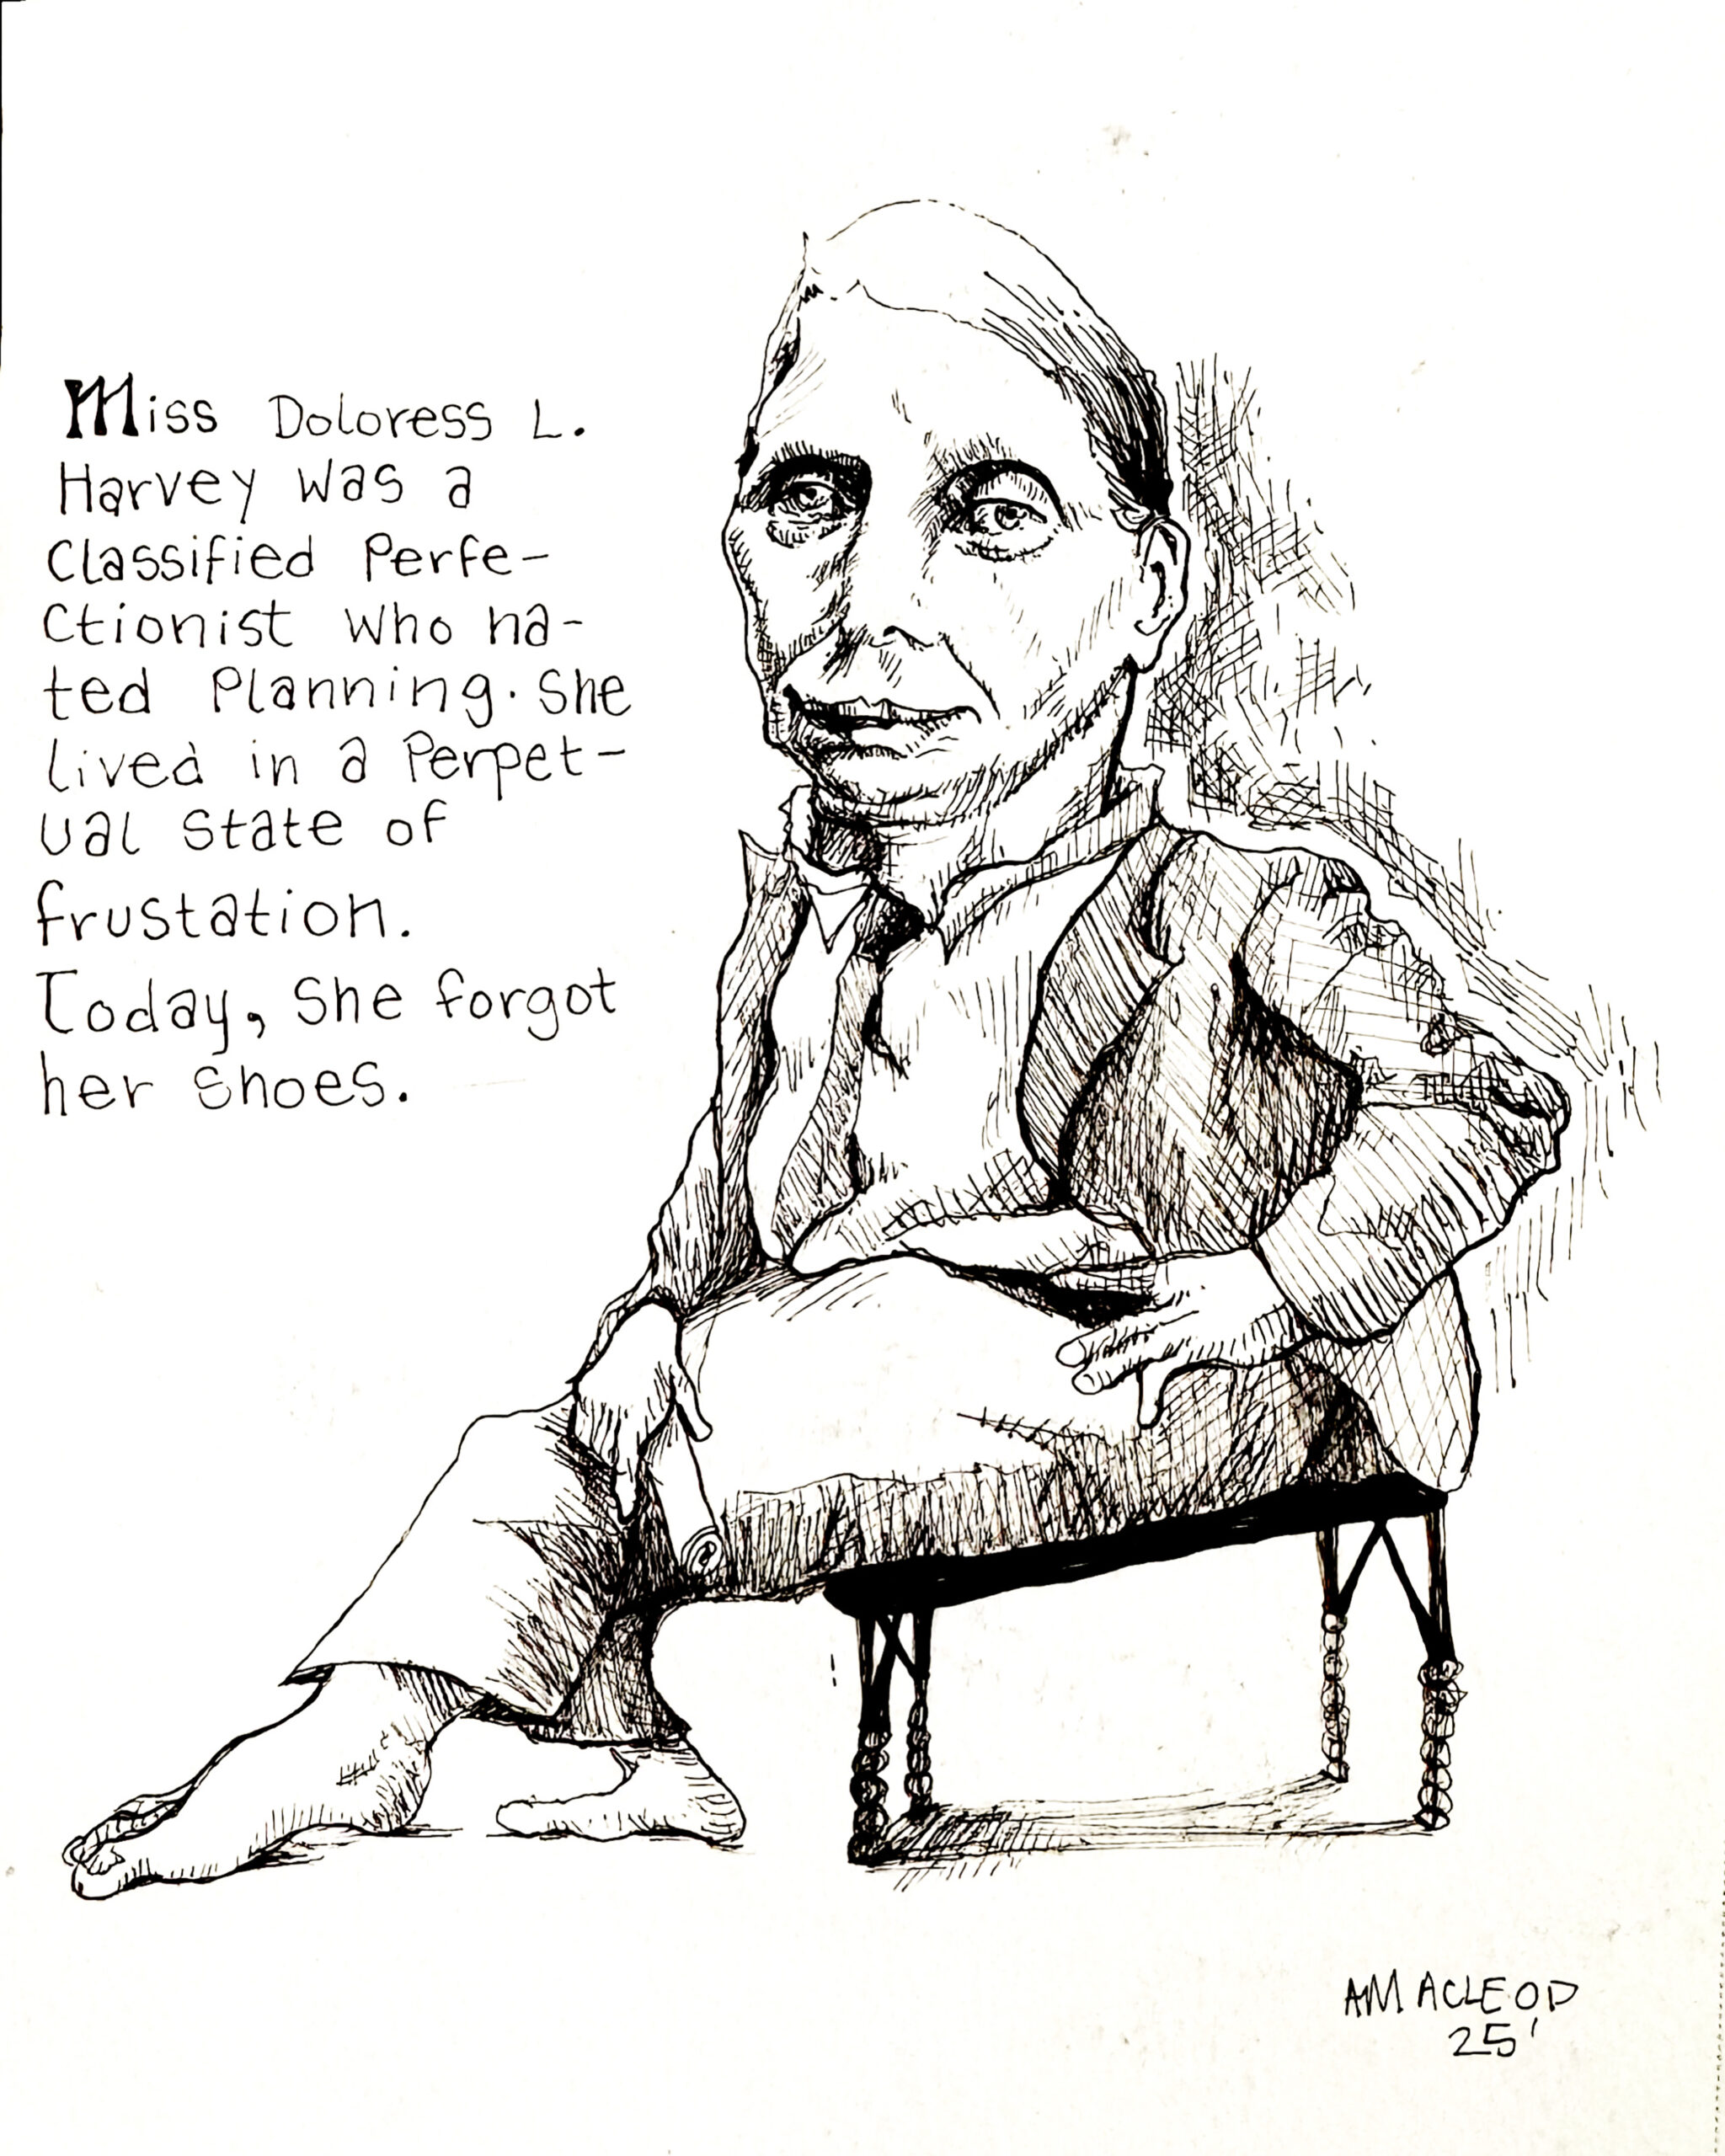 Miss Doloress L.
Harvey was a
Classified Perfe-
ctionist who ha-
ted Planning. She
lived in a Perpet-
ual state of
frustation.
Today, she forgot
her shoes.
AMACLEOD
25'